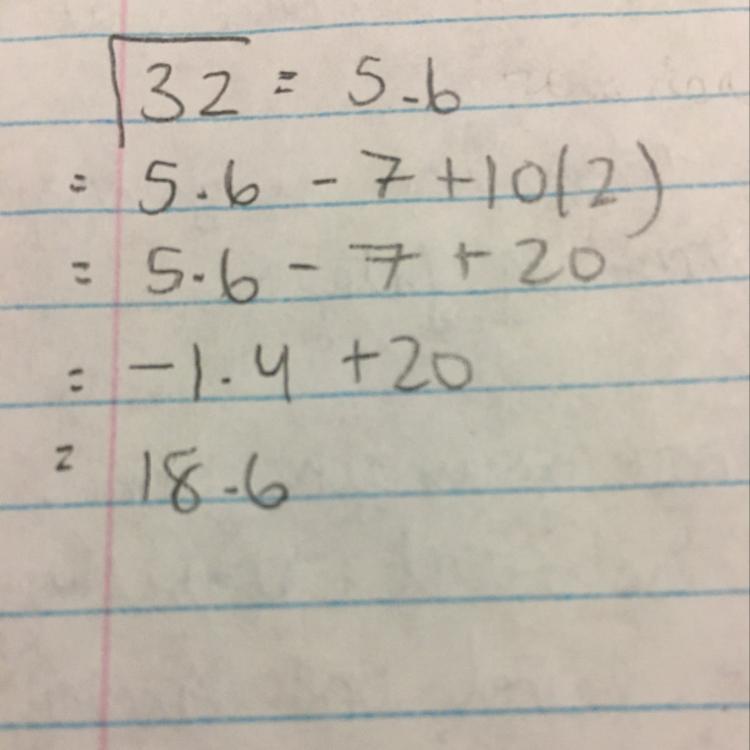 √32 = 5.6
= 5.6 - 7 + 10(2)
= 5.6 - 7 + 20
= -1.4 + 20
= 18.6